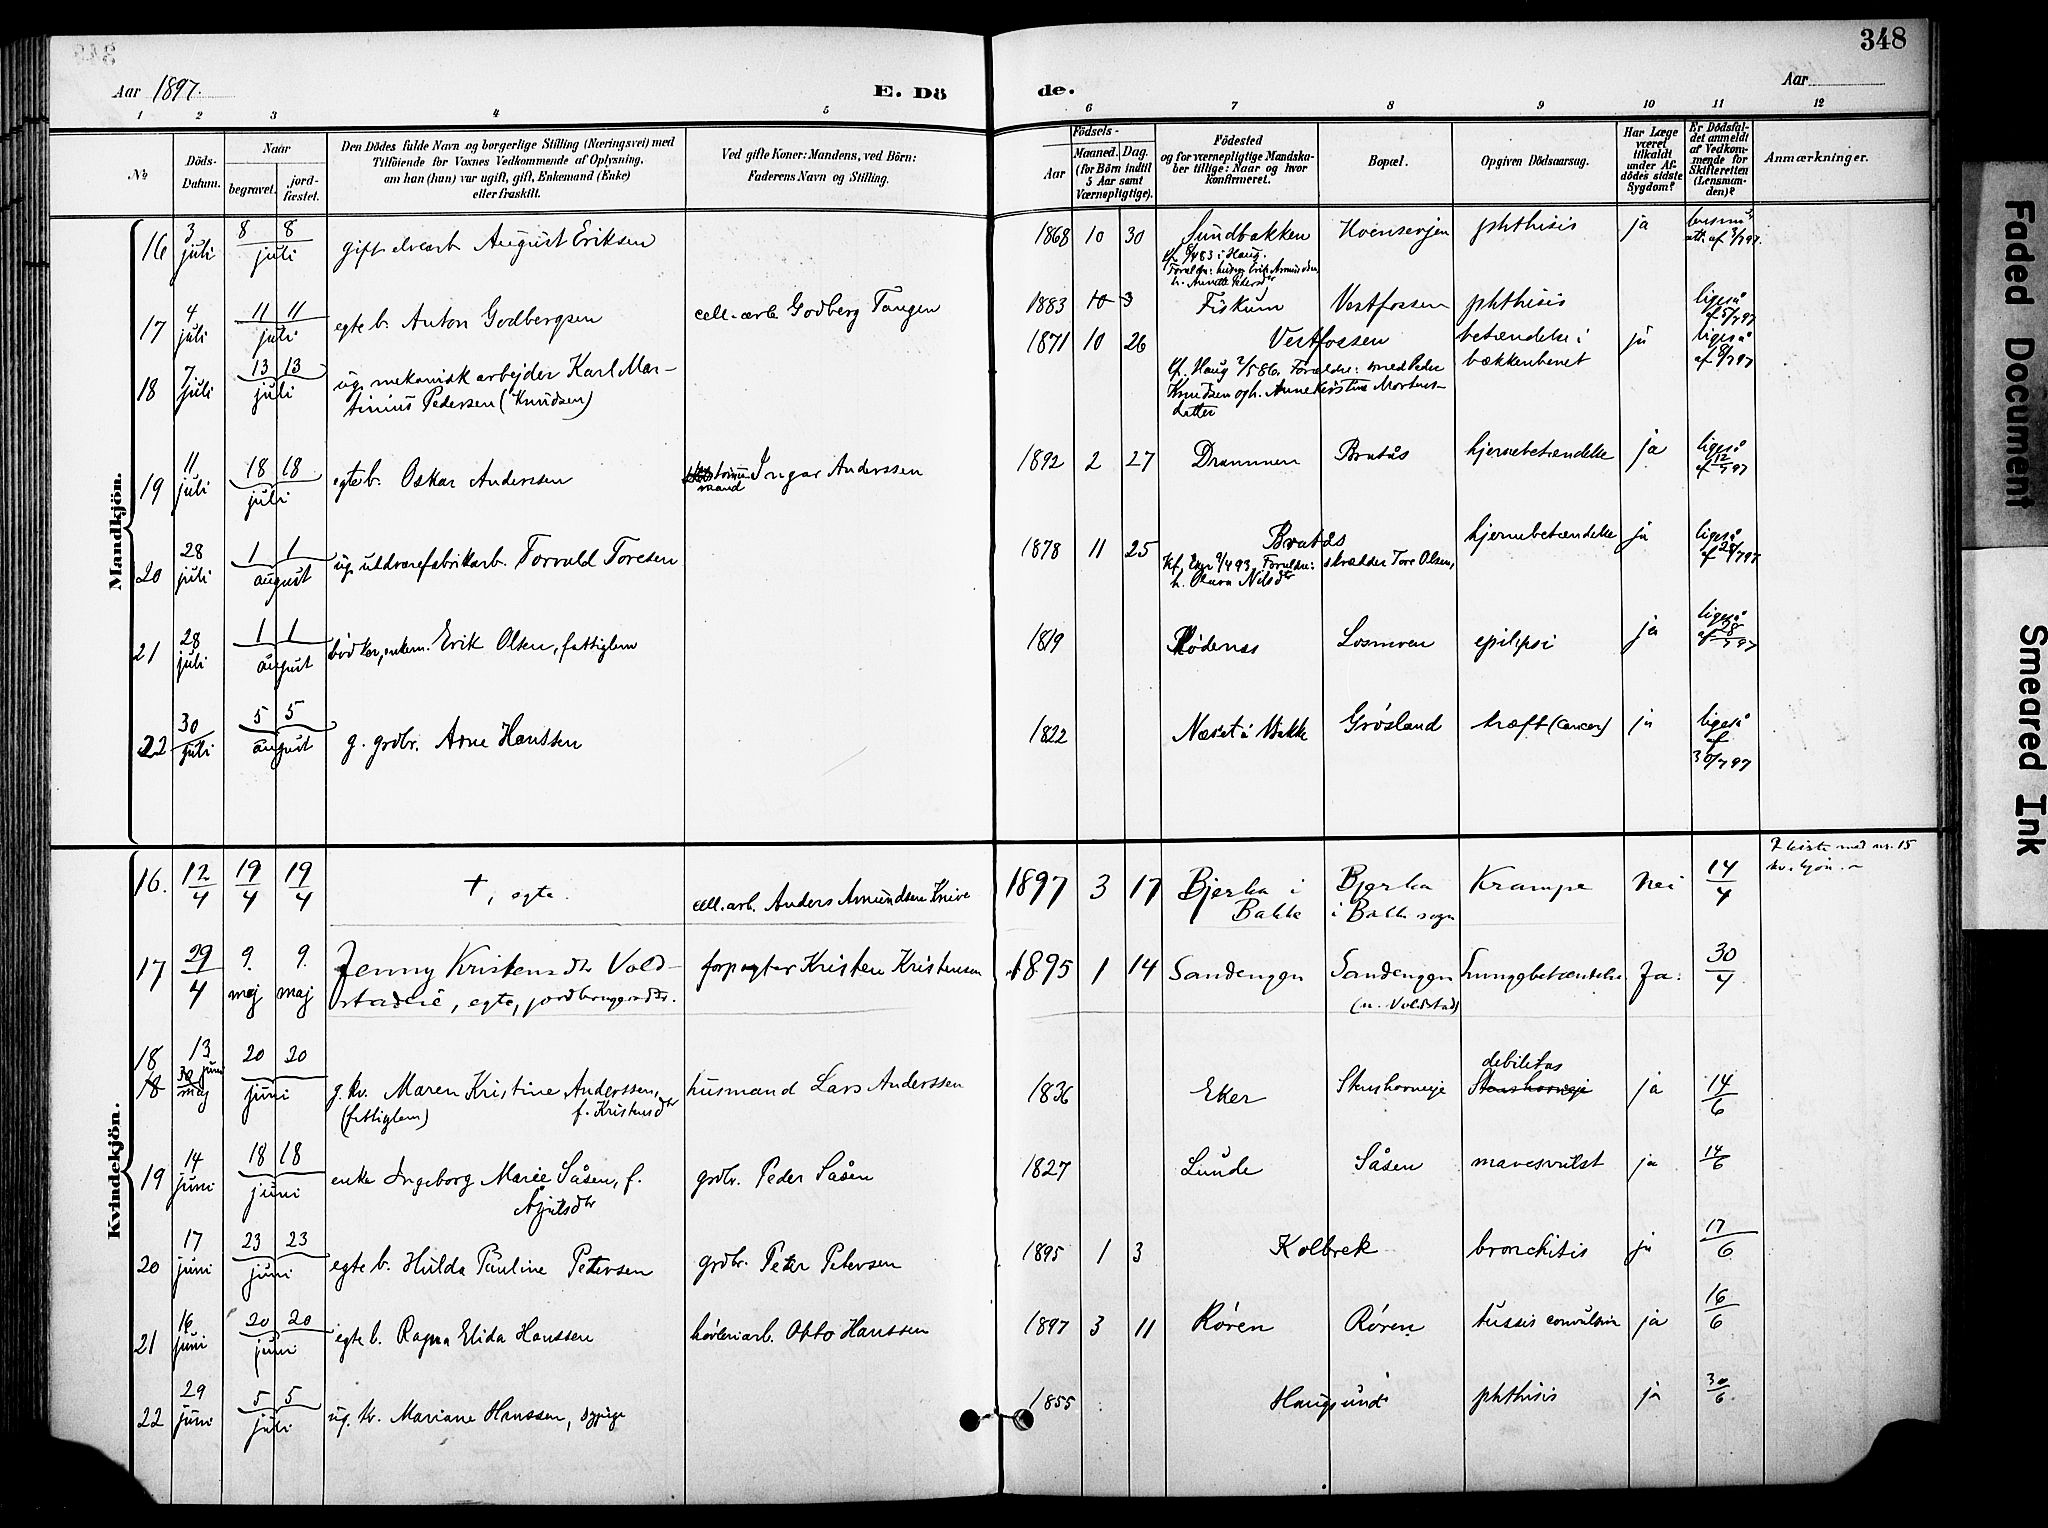 348
Aar 1897.
E. Dö de.
Aar
1 2 3 4 5 6 7 8 9 10 11 12
No
Döds-
Datum.
Naar
begravet.
jord-
fæstet.
Den Dödes fulde Navn og borgerlige Stilling (Næringsvei) med
Tilföiende for Voxnes Vedkommende af Oplysning,
om han (hun) var ugift, gift, Enkemand (Enke)
eller fraskilt.
Ved gifte Koner: Mandens, ved Börn:
Faderens Navn og Stilling.
Födsels-
Aar
Maaned. Dag.
(for Børn indtil
5 Aar samt
Værnepligtige).
Födested
og for værnepligtige Mandska-
ber tillige: Naar og hvor
konfirmeret.
Bopæl.
Opgiven Dödsaarsag.
Har Læge
været
tilkaldt
under Af-
dödes sidste
Sygdom?
Er Dödsfal-
det anmeldt
af Vedkom-
mende for
Skifteretten
(Lensman-
den)?
Anmærkninger.
Mandkjön.
16 3 juli 8 8 juli gift elvearb. August Eriksen 1868 10 30 Sundbakken Hoensenjen phthisis ja
att. af 3/7 97.
17 4 juli 11 11 juli egte b. Anton Godbergsen cell.-arb. Godberg Tangen 1883 10 3 Fiskum Vestfossen phthisis ligeså af 5/7 97
18 7 juli 13 13 juli ug. mekanisk arbejder Karl Mar-
tinius Pedersen (Knudsen) 1871 10 26 Vestfossen betændelse i
bækkenbenet ja ligeså af 8/7 97
Kf. Haug 2/5 86. Forældre: smed Peder
Knudsen og h. Anne Kirstine Mortens-
datter
19 11 juli 18 18 juli egte b. Oskar Anderssen Ingar Anderssen 1892 2 27 Drammen Bråtås hjernebetændelse ja ligeså af 12/7 97
20 28 juli 1 1 august ug. uldvarefabrikarb. Torvald Toresen 1878 11 25 Bratås hjernebetændelse ja ligeså af 28/7 97
Kf. Eger 9/4 93. Forældre: skrædder Tore Olsen,
h. Olava Nilsdtr
21 28 juli 1 1 august bødker, enkem. Erik Olsen, fattiglem 1819 Rødenæs Losmoen epilepsi ja ligeså af 28/7 97
22 30 juli 5 5 august g. grdbr. Arne Hanssen 1822 Næset i Bakke Grøsland kræft (cancer) ja ligeså af 30/7 97
Kvindekjön.
16. 12/4 19/4 19/4 +, egte. cell.arb. Anders Amundsen Knive 1897 3 17 Bjerka i
Bakke Bjerka
i Bakke sogn Krampe Nei 14/4 I kiste med nr. 15
kv.kjøn. -
17 29/4 9. maj 9. maj Jenny Kristensdtr Vold-
stadeie, egte, jordbruggerds. forpagter Kristen Kristensen 1895 1 14 Sandenggn Sandenggn
(u. Voldstad) Lunggbetændelse Ja. 30/4
18 13 juni 20 20 juni
18 30 maj g. kv. Maren Kristine Anderssen,
(fattiglem) f. Kristensdtr husmand Lars Anderssen 1836 Eker Stenshorneje debilitas
Stenshorneje ja 14/6
19 14 juni 18 18 juni enke Ingeborg Marie Såsen, f.
grdbr. Peder Såsen 1827 Lunde Såsen mavesvulst ja 14/6
20 17 juni 23 23 juni egte b. Hulda Pauline Petersen grdbr. Peter Petersen 1895 1 3 Kolbrek bronchitis ja 17/6
21 16 juni 20 20 juni egte b. Ragna Elida Hanssen høvleriarb. Otto Hanssen 1897 3 11 Røren Røren tussis convulsiva ja 16/6
22 29 juni 5 5 juli ug. kv. Mariane Hanssen, sypige 1855 Haugsund phthisis ja 30/6
Faded Document
Smeared Ink